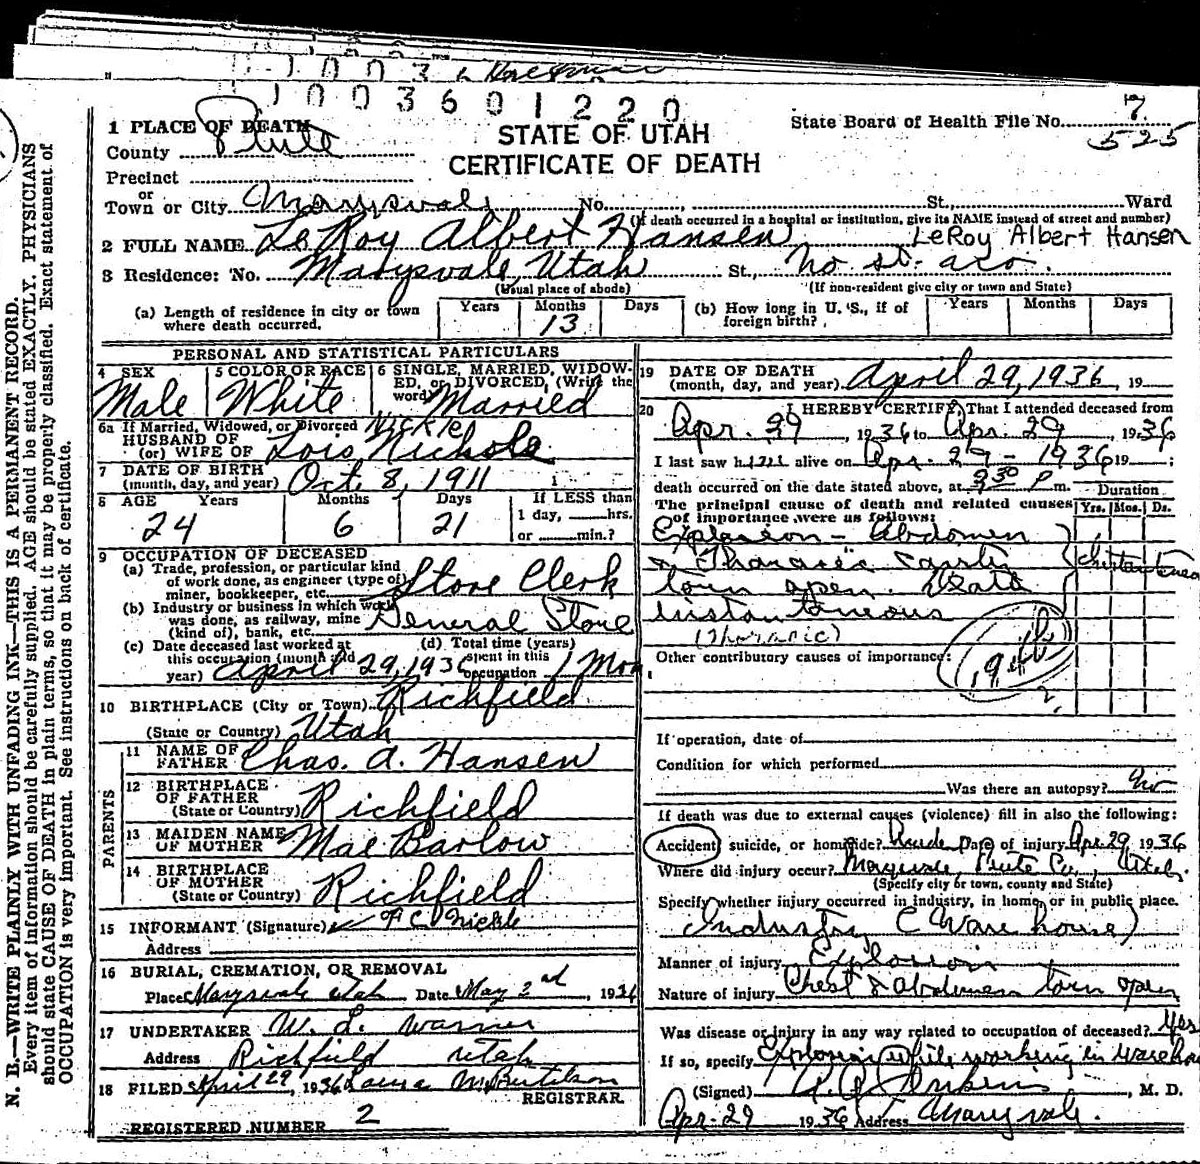 1003601220
7
State Board of Health File No. 525
STATE OF UTAH
CERTIFICATE OF DEATH
1 PLACE OF DEATH
County Piute
Precinct
or
Town or City Marysvale No. St., Ward
(If death occurred in a hospital or institution, give its NAME instead of street and number)
2 FULL NAME LeRoy Albert Hansen LeRoy Albert Hansen
3 Residence: No. Marysvale, Utah St., No st.
(Usual place of abode) (If non-resident give city or town and State)
(a) Length of residence in city or town where death occurred. Years Months 13 Days
(b) How long in U. S., if of foreign birth? Years Months Days
PERSONAL AND STATISTICAL PARTICULARS
4 SEX Male
5 COLOR OR RACE White
6 SINGLE, MARRIED, WIDOWED, or DIVORCED, (Write the word) Married
6a If Married, Widowed, or Divorced Nickle
HUSBAND OF
(or) WIFE OF Lois Nichols
7 DATE OF BIRTH
(month, day, and year) Oct 8, 1911
8 AGE Years 24 Months 6 Days 21
If LESS than
1 day, hrs.
or min.?
9 OCCUPATION OF DECEASED
(a) Trade, profession, or particular kind
of work done, as engineer (type of)
miner, bookkeeper, etc. Store Clerk
(b) Industry or business in which work
was done, as railway, mine
(kind of), bank, etc. General Store
(c) Date deceased last worked at
this occupation (month and
year) April 29, 1936
(d) Total time (years)
spent in this
occupation 1 Mon
10 BIRTHPLACE (City or Town) Richfield
(State or Country) Utah
PARENTS
11 NAME OF
FATHER Chas. A. Hansen
12 BIRTHPLACE
OF FATHER
(State or Country) Richfield
13 MAIDEN NAME
OF MOTHER Mae Barlow
14 BIRTHPLACE
OF MOTHER
(State or Country) Richfield
15 INFORMANT (Signature) C. Nickle
Address
16 BURIAL, CREMATION, OR REMOVAL
Place Marysvale Utah Date May 2nd, 1936
17 UNDERTAKER W. L. Warner
Address Richfield Utah
18 FILED April 29, 1936 Laura M.
REGISTRAR
REGISTERED NUMBER 2
19 DATE OF DEATH
(month, day, and year) April 29, 1936, 19
20 I HEREBY CERTIFY, That I attended deceased from
Apr. 29, 1936 to Apr. 29, 1936
I last saw him alive on Apr. 29 - 1936 19 ;
death occurred on the date stated above, at 3:30 P m. Duration
The principal cause of death and related causes
of importance were as follows: Yrs. Mos. Ds.
Explosion - Abdomen
& Tharasic cavity
torn open. Death
instantaneous
(Thoracic)
Other contributory causes of importance:
194b
2.
If operation, date of
Condition for which performed
Was there an autopsy? No
If death was due to external causes (violence) fill in also the following:
Accident, suicide, or homicide? Date of injury Apr 29 1936
Where did injury occur? Marysvale, Piute Co., Utah.
(Specify city or town, county and State)
Specify whether injury occurred in industry, in home, or in public place.
Industry (Warehouse)
Manner of injury Explosion
Nature of injury Chest & Abdomen torn open
Was disease or injury in any way related to occupation of deceased? Yes
If so, specify Explosion while working in Warehouse
(Signed) , M. D.
Apr. 29 1936 Address Marysvale.
N. B.—WRITE PLAINLY WITH UNFADING INK—THIS IS A PERMANENT RECORD.
Every item of information should be carefully supplied. AGE should be stated EXACTLY. PHYSICIANS
should state CAUSE OF DEATH in plain terms, so that it may be properly classified. Exact statement of
OCCUPATION is very important. See instructions on back of certificate.